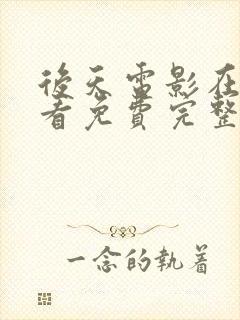 後天電影在
看免費完整
一念的執着